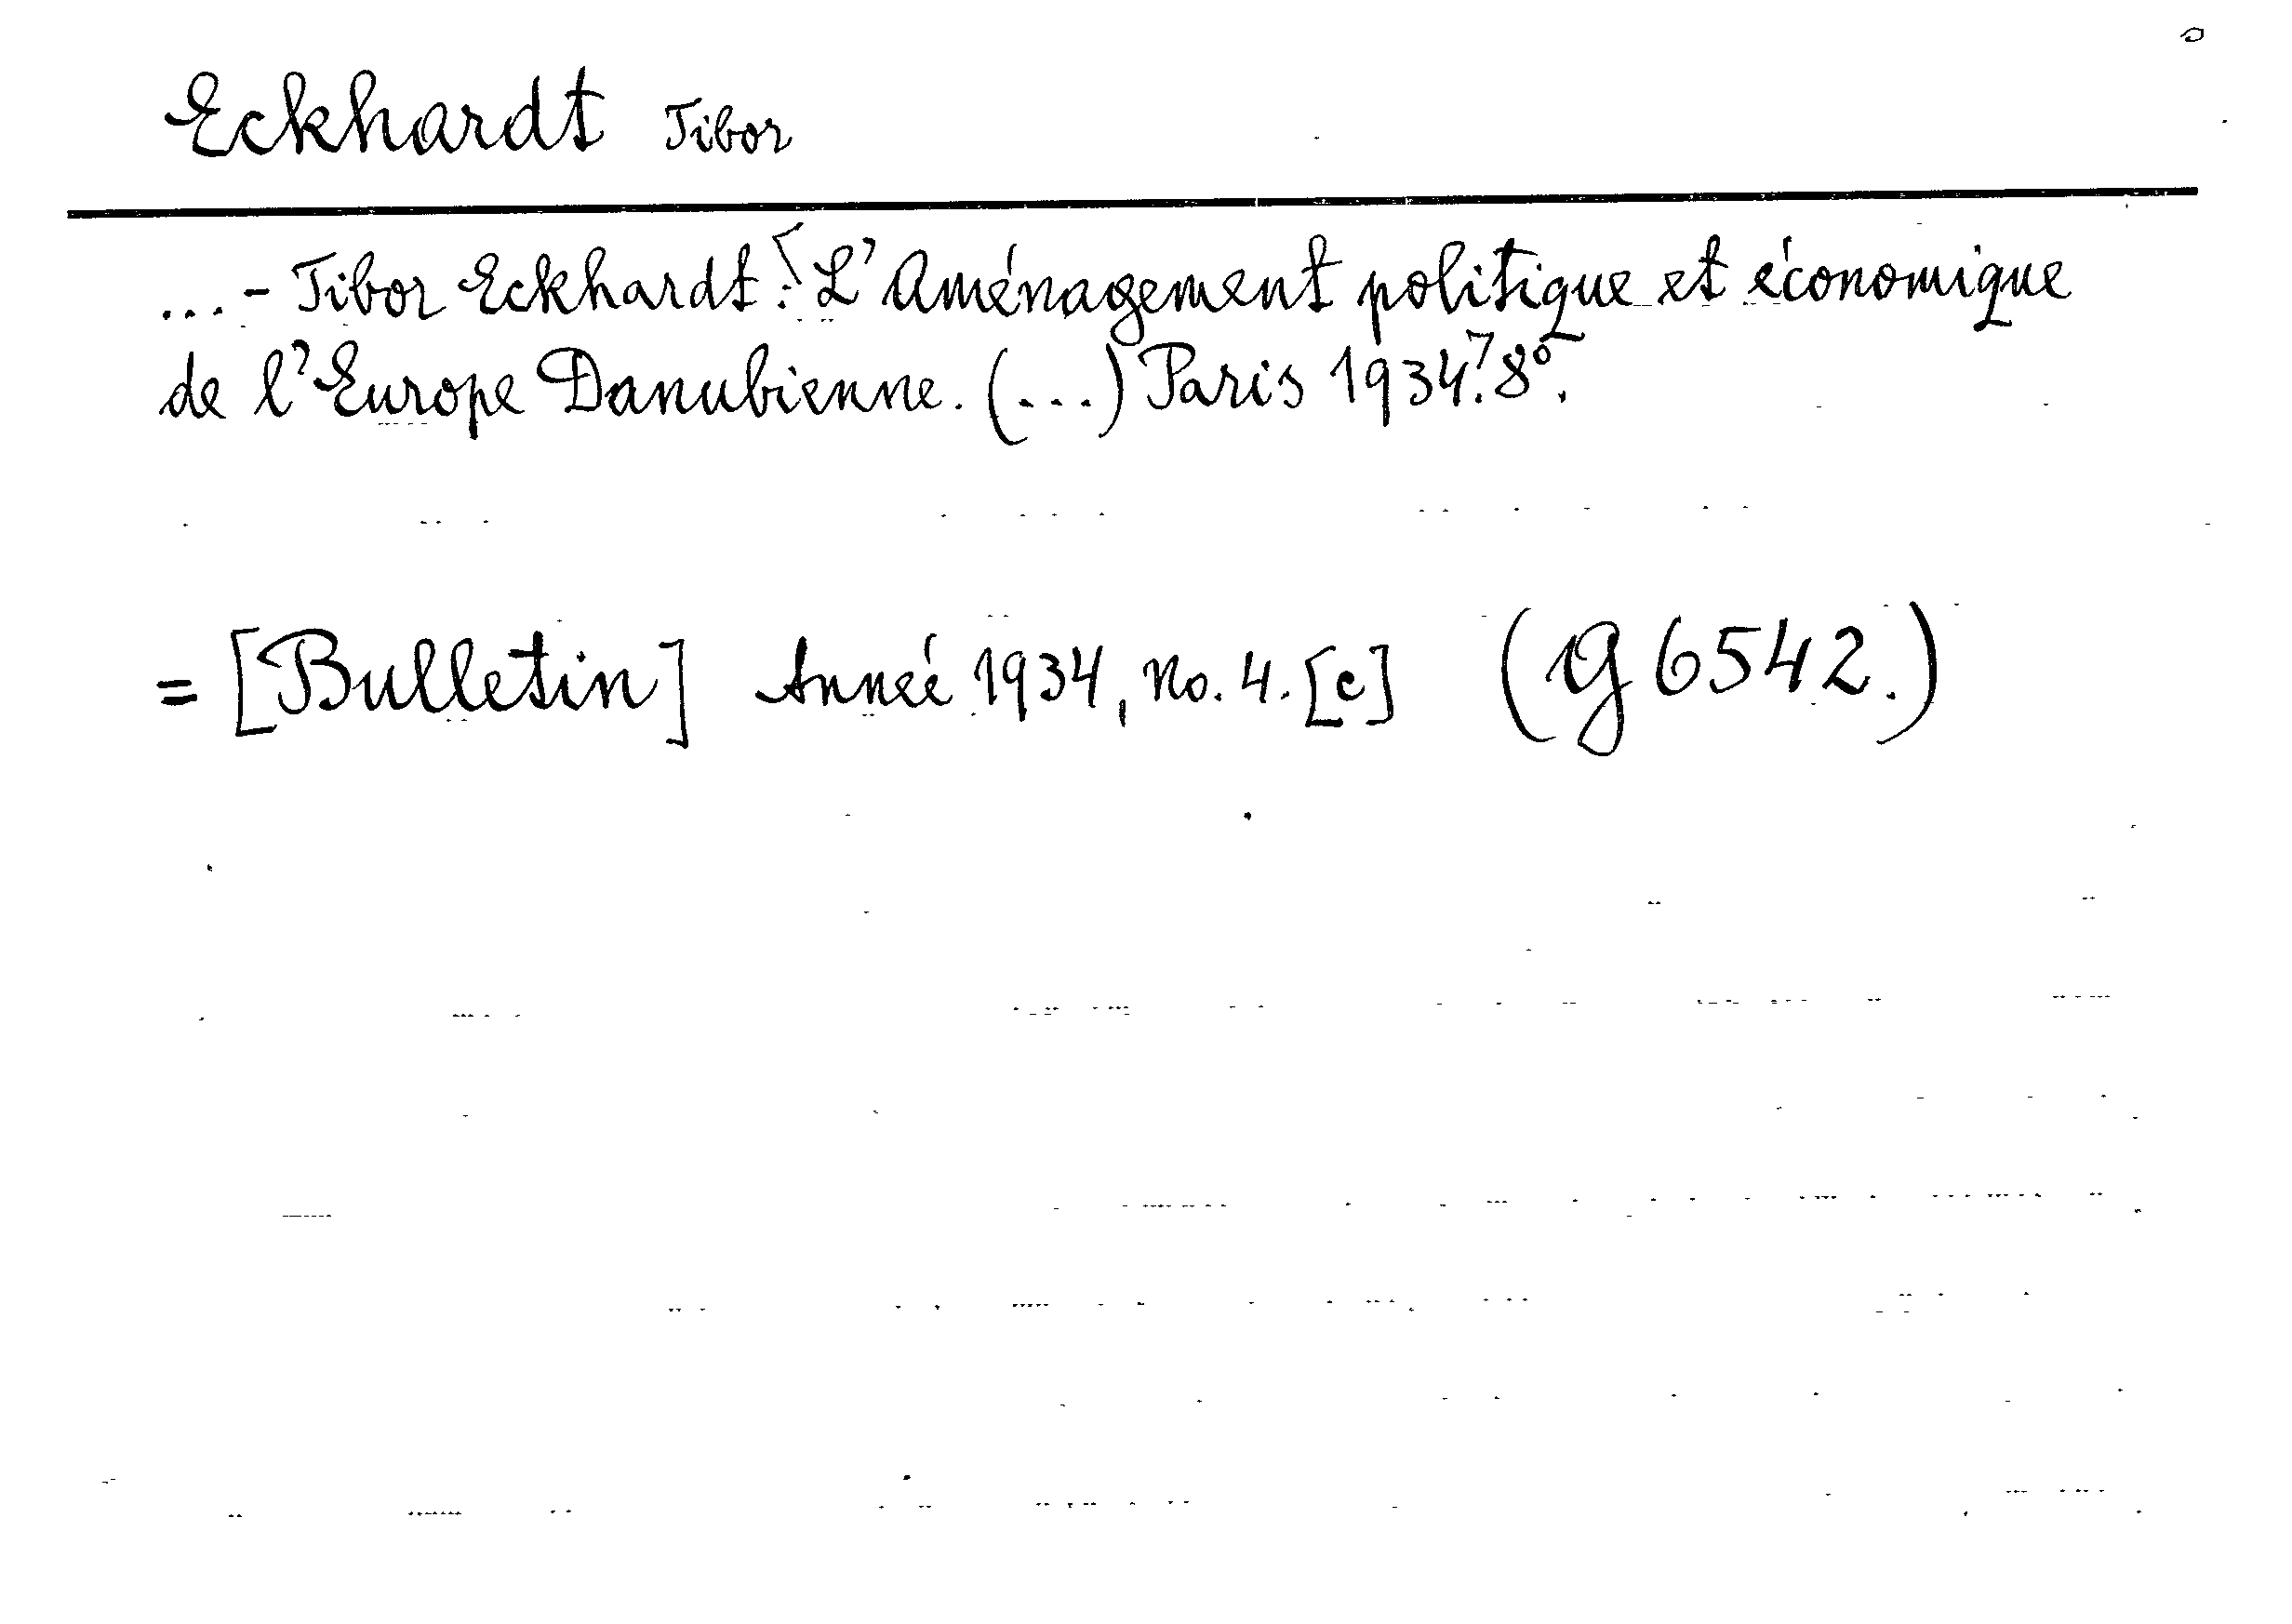 Eckhardt Tibor
...- Tibor Eckhardt: ⌈L'Aménagement politique et économique
de l'Europe Danubienne. (...) Paris 1934.⌉ 8°.
= [Bulletin] Année 1934, No. 4. [c] (G 6542.)